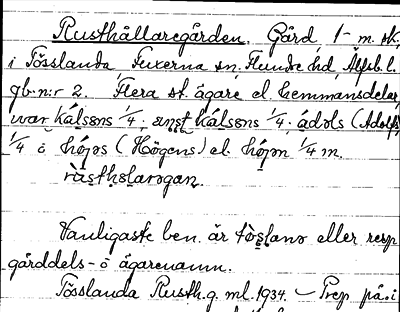 Rusthållaregården. Gård, 1- m. sk.
i Tösslanda Fuxerna sn, Flundre hd, Älfsb. l.
gb-n:r 2. Flera st. ägare el hemmansdelar,
var kálsons 1/4; kálsons 1/4; ádols (Adolfs)
1/4 o hó̜jəs (Högens) el. hó̜jən 1/4 m.
Vanligaste ben. är eller resp
gårddels- o ägarenamn.
Tösslanda Rusth.g. ml. 1934. – Prep på. i